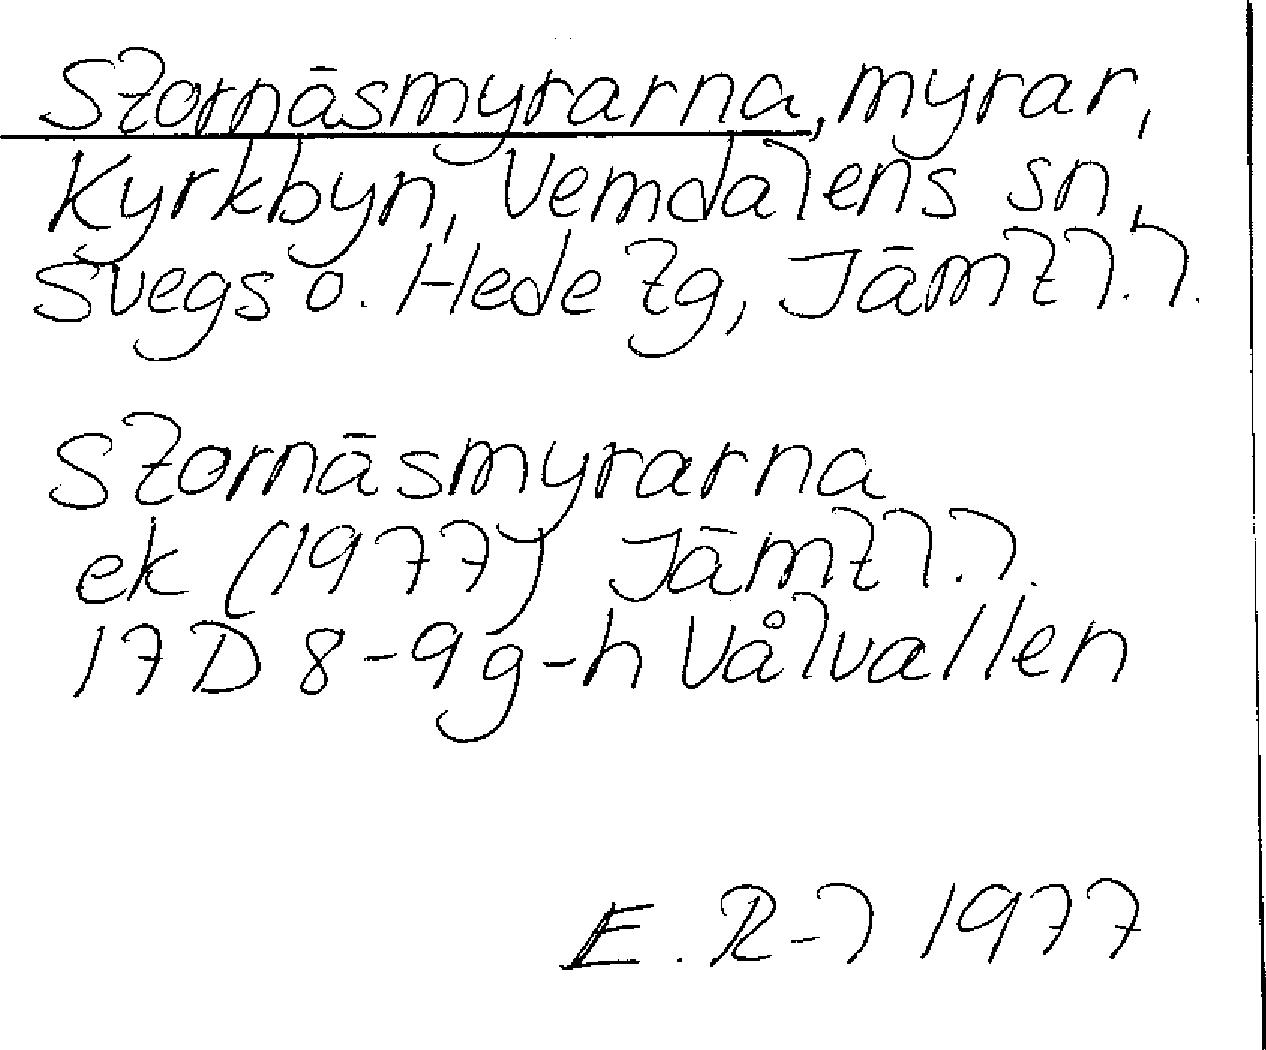 Stornäsmyrarna, myrar,
Kyrkbyn, Vemdalens sn,
Svegs o. Hede tg, Jämtl. l.
Stornäsmyrarna
ek (1977) Jämtl. l.
17D 8-9g-h Vålvallen
E. R-l 1977